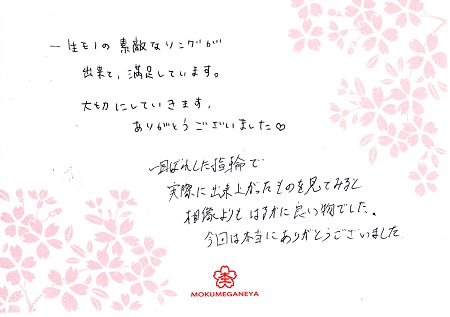 一生モノの素敵なリングが
出来て、満足しています。
大切にしていきます。
ありがとうございました♡
一目ぼれした指輪で
実際に出来上がったものを見てみると
想像よりもはるかに良い物でした。
今回は本当にありがとうございました
MOKUMEGANEYA